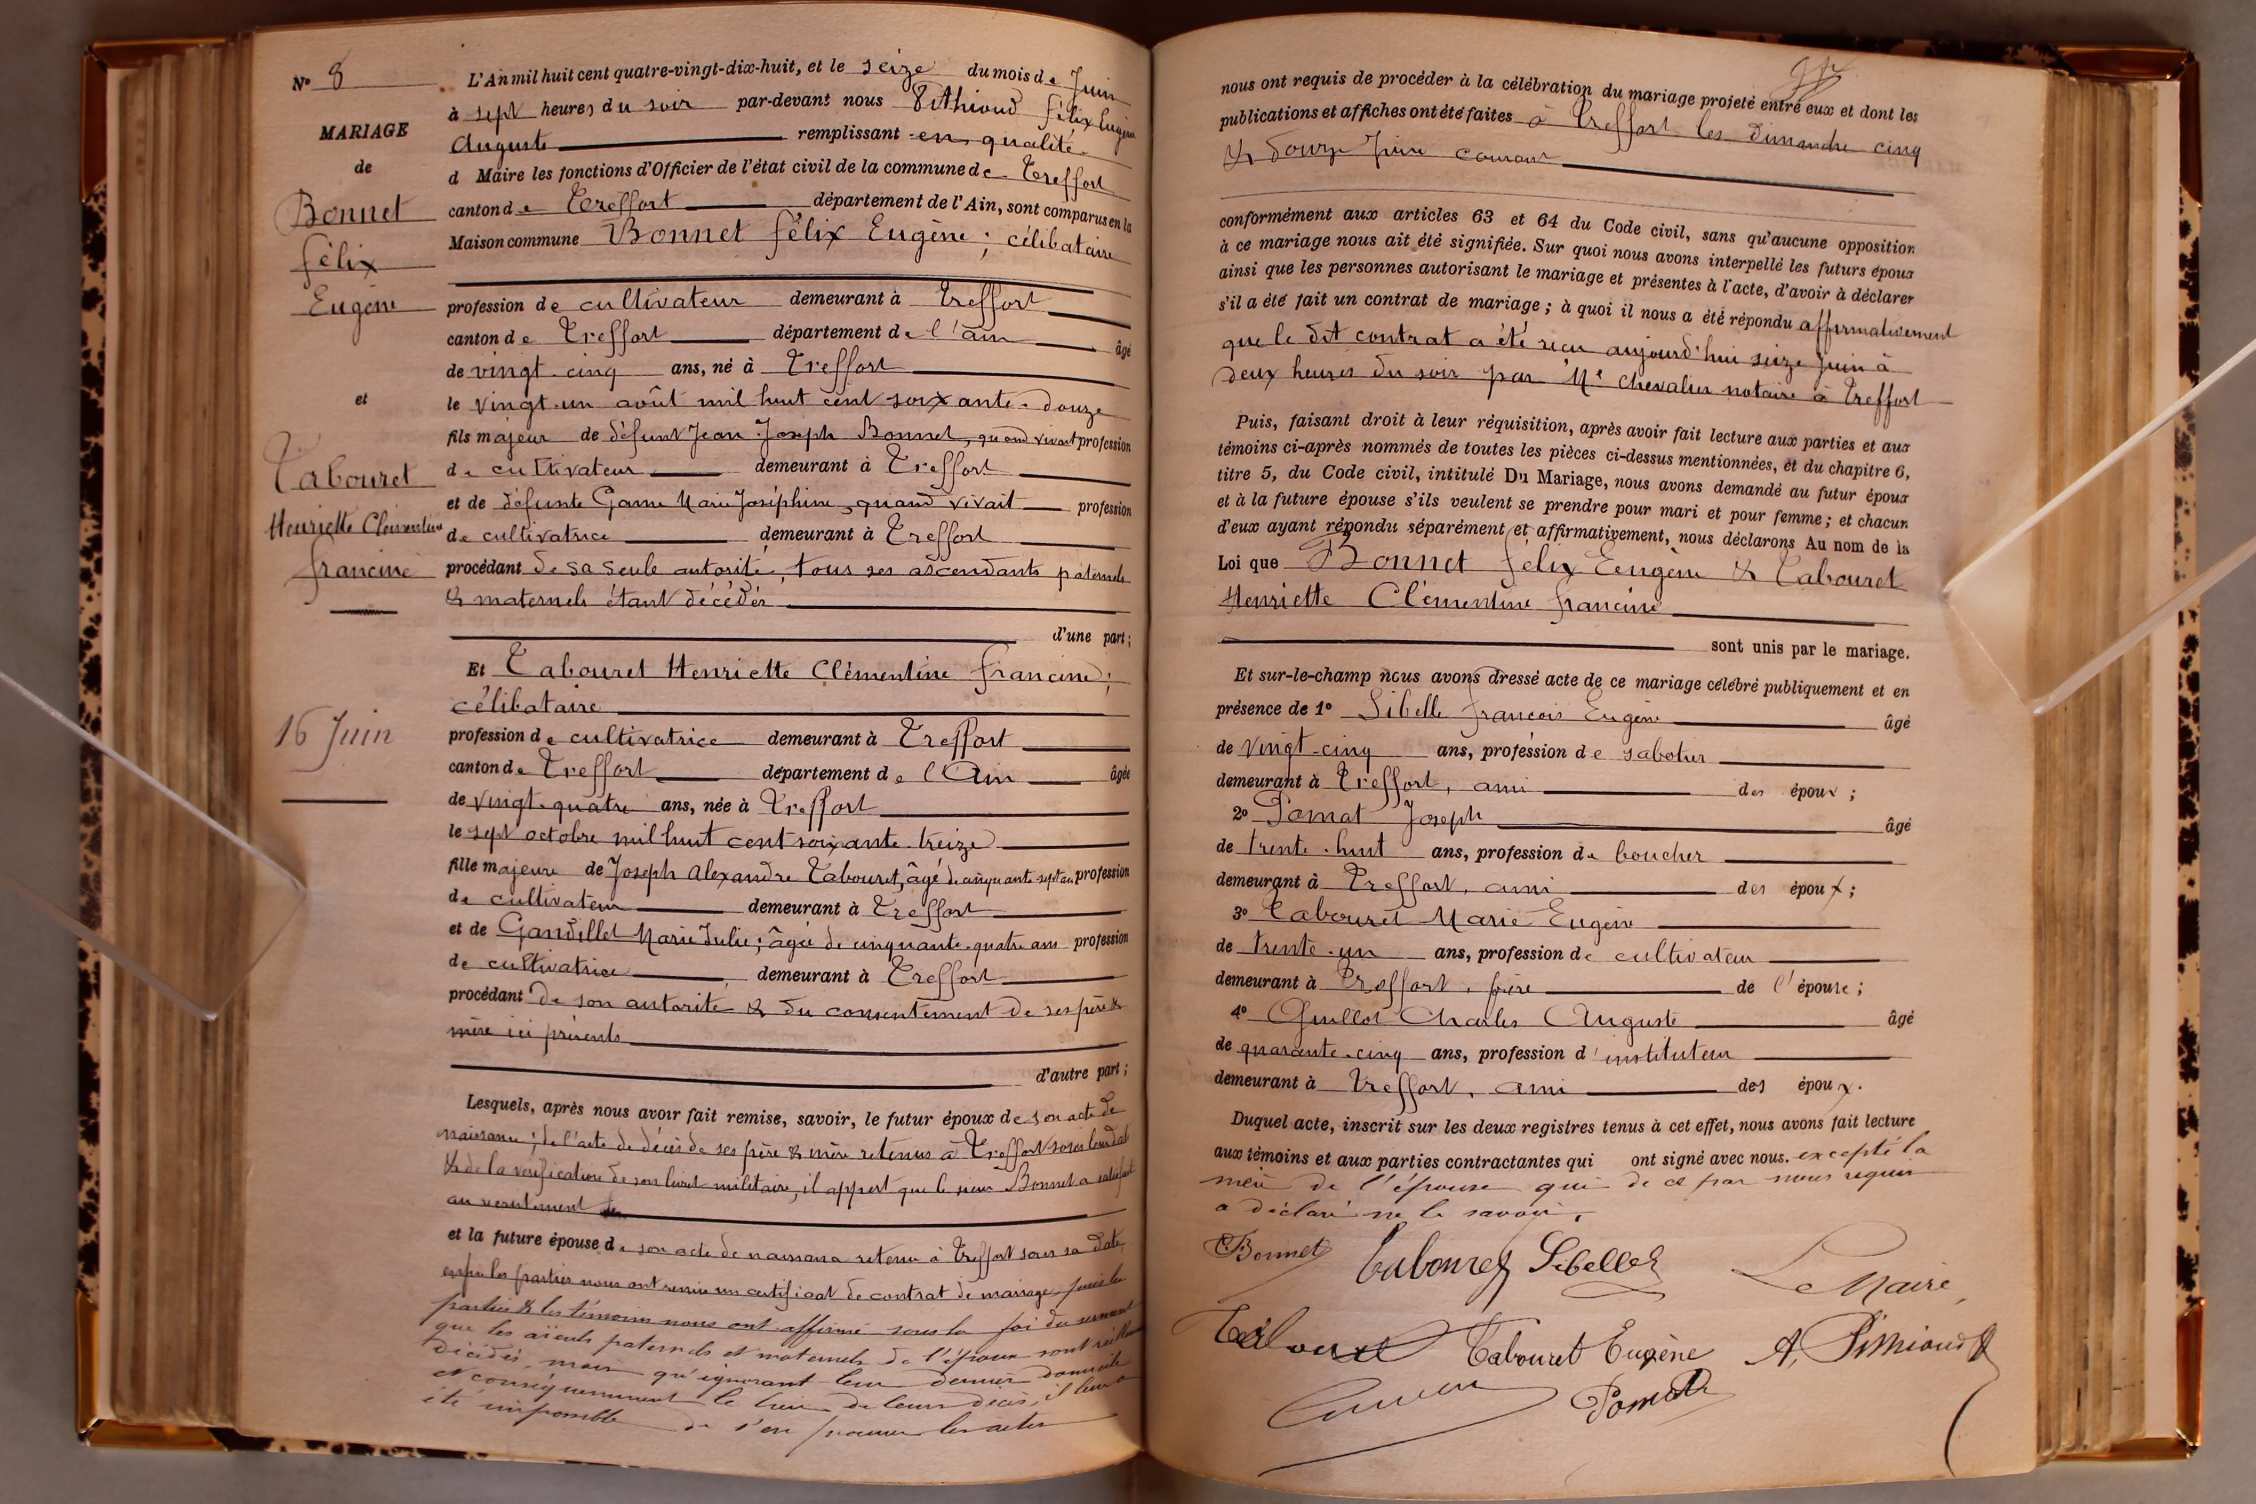 N° 8
MARIAGE
de
Bonnet
félix
Eugène
et
Tabouret
Henriette Clémentine
francine
16 Juin
L'An mil huit cent quatre-vingt-dix-huit, et le seize du mois de Juin
à sept heures du soir par-devant nous Pithioud félix Eugène
Auguste remplissant en qualité
d Maire les fonctions d'Officier de l'état civil de la commune de Treffort
canton de Treffort département de l'Ain, sont comparus en la
Maison commune Bonnet félix Eugène ; célibataire
profession de cultivateur demeurant à Treffort
canton de Treffort département de l'ain âgé
de vingt-cinq ans, né à Treffort
le vingt-un août mil huit cent soixante-douze
fils majeur de défunt Jean Joseph Bonnet, quand vivait profession
de cultivateur demeurant à Treffort
et de défunte Marie Joséphine, quand vivait profession
de cultivatrice demeurant à Treffort
procédant de sa seule autorité, tous ses ascendants paternels
& maternels étant décédés
d'une part ;
Et Tabouret Henriette Clémentine francine ;
célibataire
profession de cultivatrice demeurant à Treffort
canton de Treffort département de l'Ain âgée
de vingt-quatre ans, née à Treffort
le sept octobre mil huit cent soixante-treize
fille majeure de Joseph Alexandre Tabouret, âgé de cinquante sept ans profession
de cultivateur demeurant à Treffort
et de Gandillet Marie Julie ; âgée de cinquante-quatre ans profession
de cultivatrice demeurant à Treffort
procédant de son autorité & du consentement de ses père &
mère ici présents
d'autre part ;
Lesquels, après nous avoir fait remise, savoir, le futur époux de son acte de
naissance ; de l'acte de décès de ses père & mère retenus à Treffort sous leur date
& de la vérification de son livret militaire, il appert que le sieur Bonnet a satisfait
au recrutement
et la future épouse de son acte de naissance retenu à Treffort sous sa date,
enfin les parties nous ont remis un certificat de contrat de mariage, puis les
parties & les témoins nous ont affirmé sous la foi du serment
que les aïeuls paternels et maternels de l'époux sont
décédés, mais qu'ignorant leur dernier domicile
et conséquemment le lieu de leurs décès, il leur a
été impossible de s'en procurer les actes
nous ont requis de procéder à la célébration du mariage projeté entre eux et dont les
publications et affiches ont été faites à Treffort les dimanche cinq
& douze Juin courant
conformément aux articles 63 et 64 du Code civil, sans qu'aucune opposition
à ce mariage nous ait été signifiée. Sur quoi nous avons interpellé les futurs époux
ainsi que les personnes autorisant le mariage et présentes à l'acte, d'avoir à déclarer
s'il a été fait un contrat de mariage ; à quoi il nous a été répondu affirmativement
que le dit contrat a été reçu aujourd'hui seize Juin à
deux heures du soir par Me Chevalier notaire à Treffort
Puis, faisant droit à leur réquisition, après avoir fait lecture aux parties et aux
témoins ci-après nommés de toutes les pièces ci-dessus mentionnées, et du chapitre 6,
titre 5, du Code civil, intitulé Du Mariage, nous avons demandé au futur époux
et à la future épouse s'ils veulent se prendre pour mari et pour femme ; et chacun
d'eux ayant répondu séparément et affirmativement, nous déclarons Au nom de la
Loi que Bonnet félix Eugène & Tabouret
Henriette Clémentine francine
sont unis par le mariage.
Et sur-le-champ nous avons dressé acte de ce mariage célébré publiquement et en
présence de 1° Sibelle françois Eugène âgé
de vingt-cinq ans, profession de sabotier
demeurant à Treffort, ami des époux ;
2° Pomat Joseph âgé
de trente-huit ans, profession de boucher
demeurant à Treffort, ami des époux ;
3° Tabouret Marie Eugène
de trente-un ans, profession de cultivateur
demeurant à Treffort, frère de l'épouse ;
4° Guillot Charles Auguste âgé
de quarante-cinq ans, profession d'instituteur
demeurant à Treffort, ami des époux.
Duquel acte, inscrit sur les deux registres tenus à cet effet, nous avons fait lecture
aux témoins et aux parties contractantes qui ont signé avec nous. excepté la
mère de l'épouse qui de ce par nous requis
a déclaré ne le savoir.
Bonnet Tabouret Sibelle
Le Maire,
Tabouret Tabouret Eugène A. Pithioud
Pomat